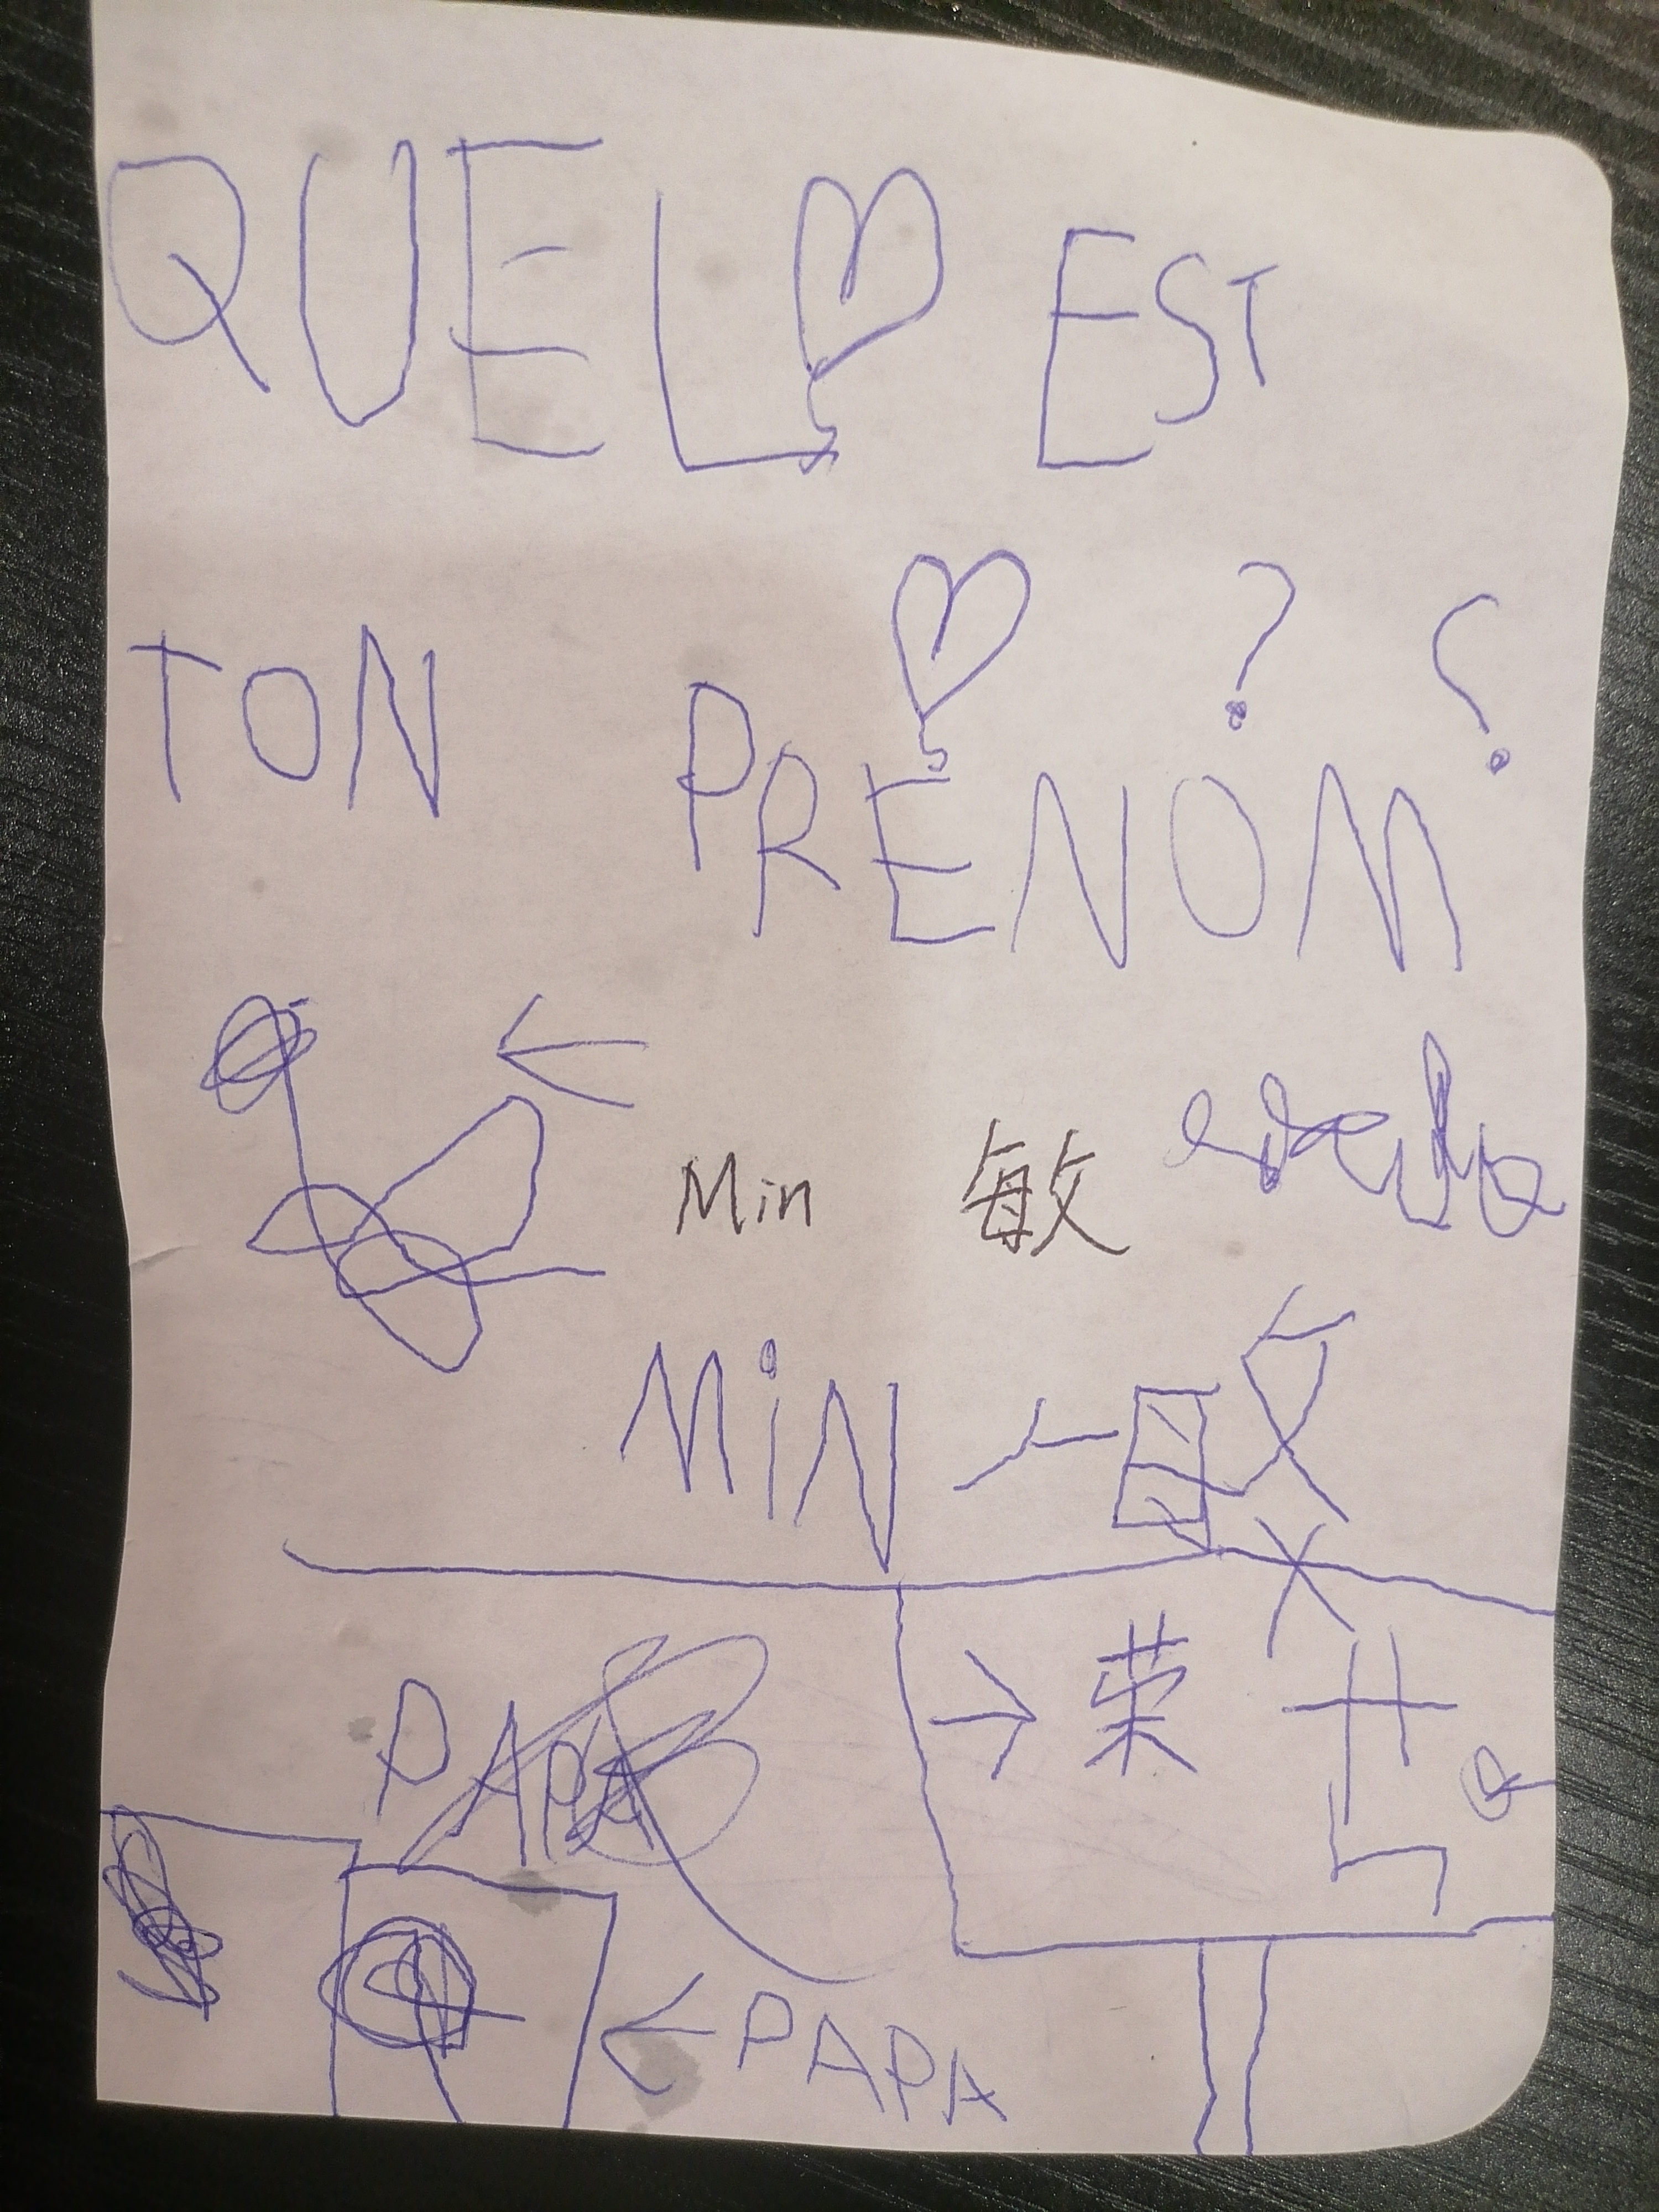 QUEL EST
TON PRENOM ? ?
Min 敏
MiN
PAPA → 荣
← PAPA